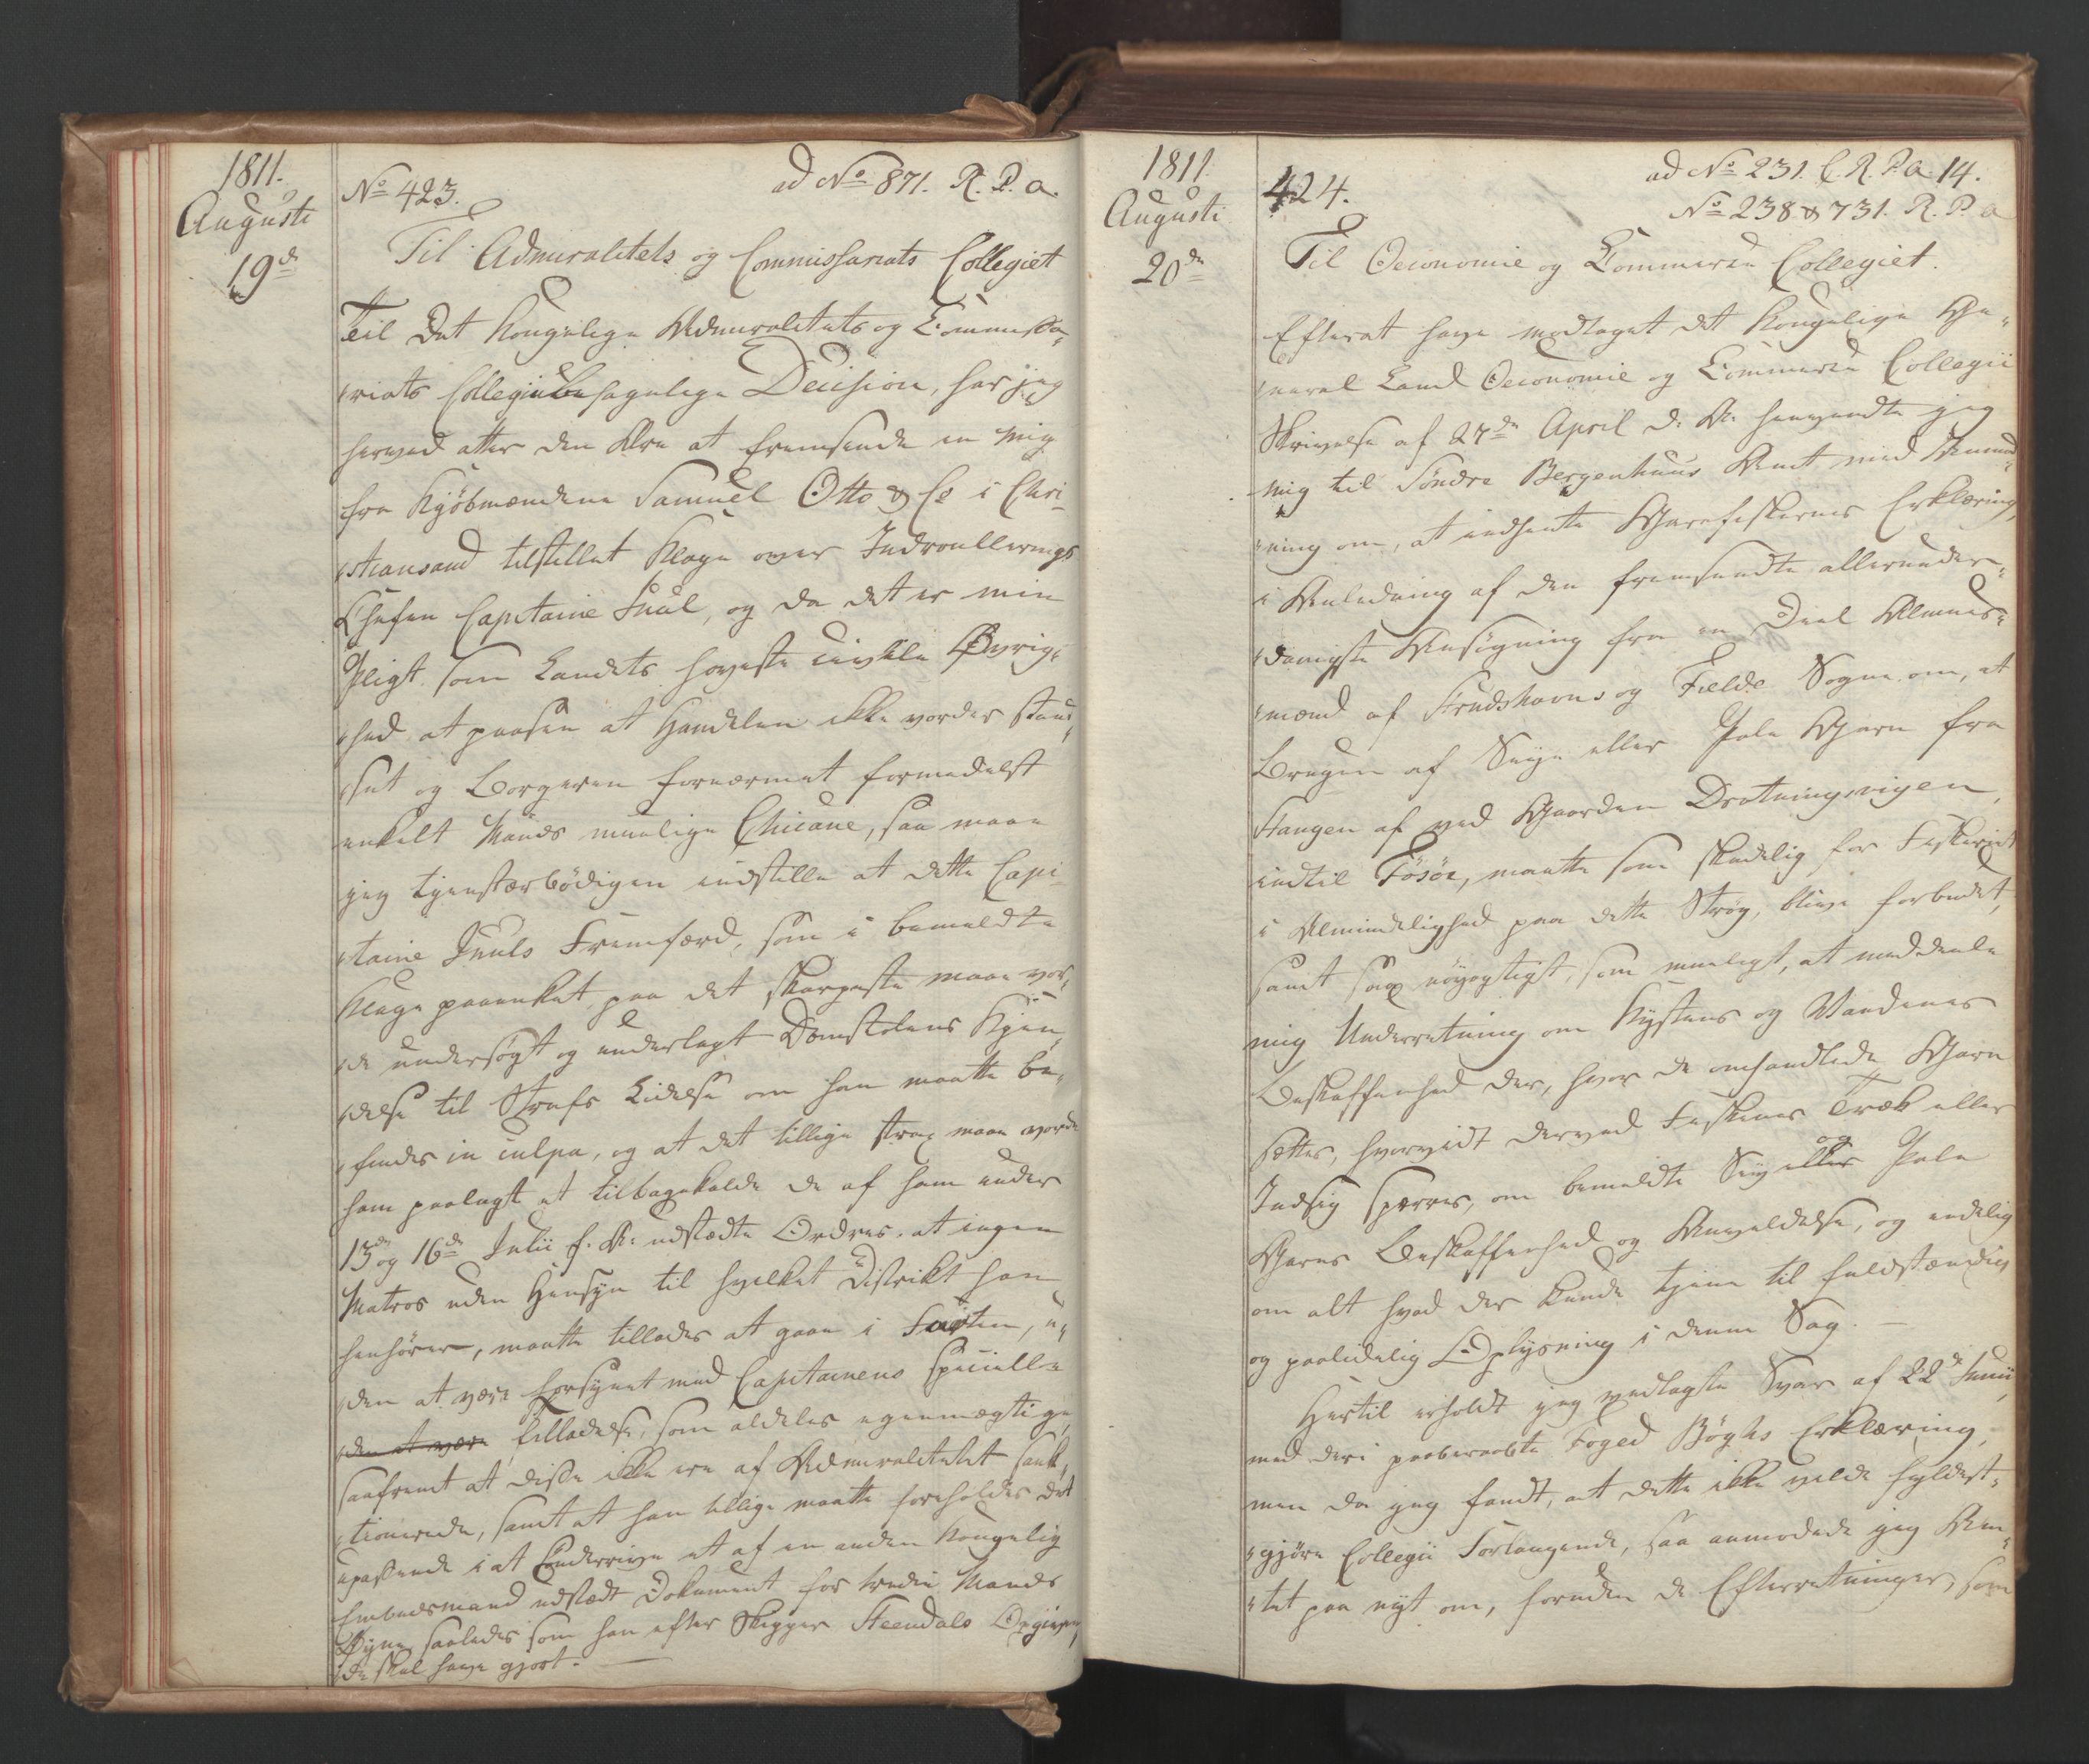 1811.
Augusti
19de
No 423.
ad No 871. R. P. a.
Til Admiralitets og Commissariats Collegiet
Til Det Kongelige Admiralitets og Commissa„
„riats Collegii behagelige Decision, har jeg
herved atter den Ære at fremsende en mig
fra Kjöbmændene Samuel Otto & Co i Chri„
„stiansand tilstillet Klage over Indroullerings
Chefen Capitaine Juul, og da det er min
Pligt som Landets höyeste civile Øvrig„
„hed at paasee at Handelen ikke vorder stand„
„set og Borgeren fornærmet formedelst
enkelt Mands muelige Chicane, saa maae
jeg tjenstærbödigen indstille at dette Capi„
„taine Juuls Fremfærd, som i bemeldte
Klage paaanket, paa det skarpeste maae vor„
„de undersögt og underlagt Domstolens Kjen„
„delse til Strafs Lidelse om han maatte be„
„findes in culpa, og at det tillige strax maae vorde
ham paalagt at tilbagekalde de af ham under
13de og 16de Julii d. A: udstædte Ordres, at ingen
Matros uden Hensyn til hvilket District han
henhörer, maatte tillades at gaae i Farten, u„
„den at være forsynet med Capitainens specielle
„den at være tilladelse, som aldeles egenmægtige
saafremt at disse ikke ere af Admiralitetet sank„
„tionerede, samt at han tillige maatte foreholdes det
upassende i at sønderrive et af en anden Kongelig
Embedsmand udstædt Dokument for tredie Mands
Öyne, saaledes som han efter Skipper Steendals Opgivende
skal have gjort. —
1811.
Augusti
20de
424.
ad No 231. C. R. P. a 14.
No 238 & 731. R. P. a
Til Oeconomie og Commerce Collegiet.
Efterat have modtaget det Kongelige Ge„
„neral Land Oeconomie og Commerce Collegii
Skrivelse af 27de April d: A: henvendte jeg
mig til Söndre Bergenhuus Amt med Anmod„
„ning om, at indhente Garnfiskernes Erklæring,
i Anledning af den fremsendte allerunder„
„danigste Ansögning fra en Deel Almues„
„mænd af Strudshavns og Fielde Sogne om, at
Brugen af Seye eller Pale Garn fra
Stangen af ved Gaarden Drotningvigen,
indtil Fösöe, maatte som skadelig for Fiskeriet
i Almindelighed paa dette Strög, blive forbudet,
samt saa nöyagtigt, som mueligt, at meddeele
mig Underretning om Kystens og Vandenes
Beskaffenhed der, hvor de omhandlede Garn
sættes, hvorvidt derved Fiskenes Træk eller
Indsig spærres, om bemeldte Sey eller og Pale
Garns Beskaffenhed og Anvendelse, og endelig
om alt hvad der kunde tjene til fuldstændig
og paalidelig Oplysning i denne Sag. —
Hertil erholdt jeg vedlagte Svar af 22de Junii,
med deri paaberaabte Foged Böghs Erklæring,
men da jeg fandt, at dette ikke vilde fyldest„
„gjöre Collegii Forlangende, saa anmodede jeg Am„
„tet paa nyt om, foruden de Efterretninger, som